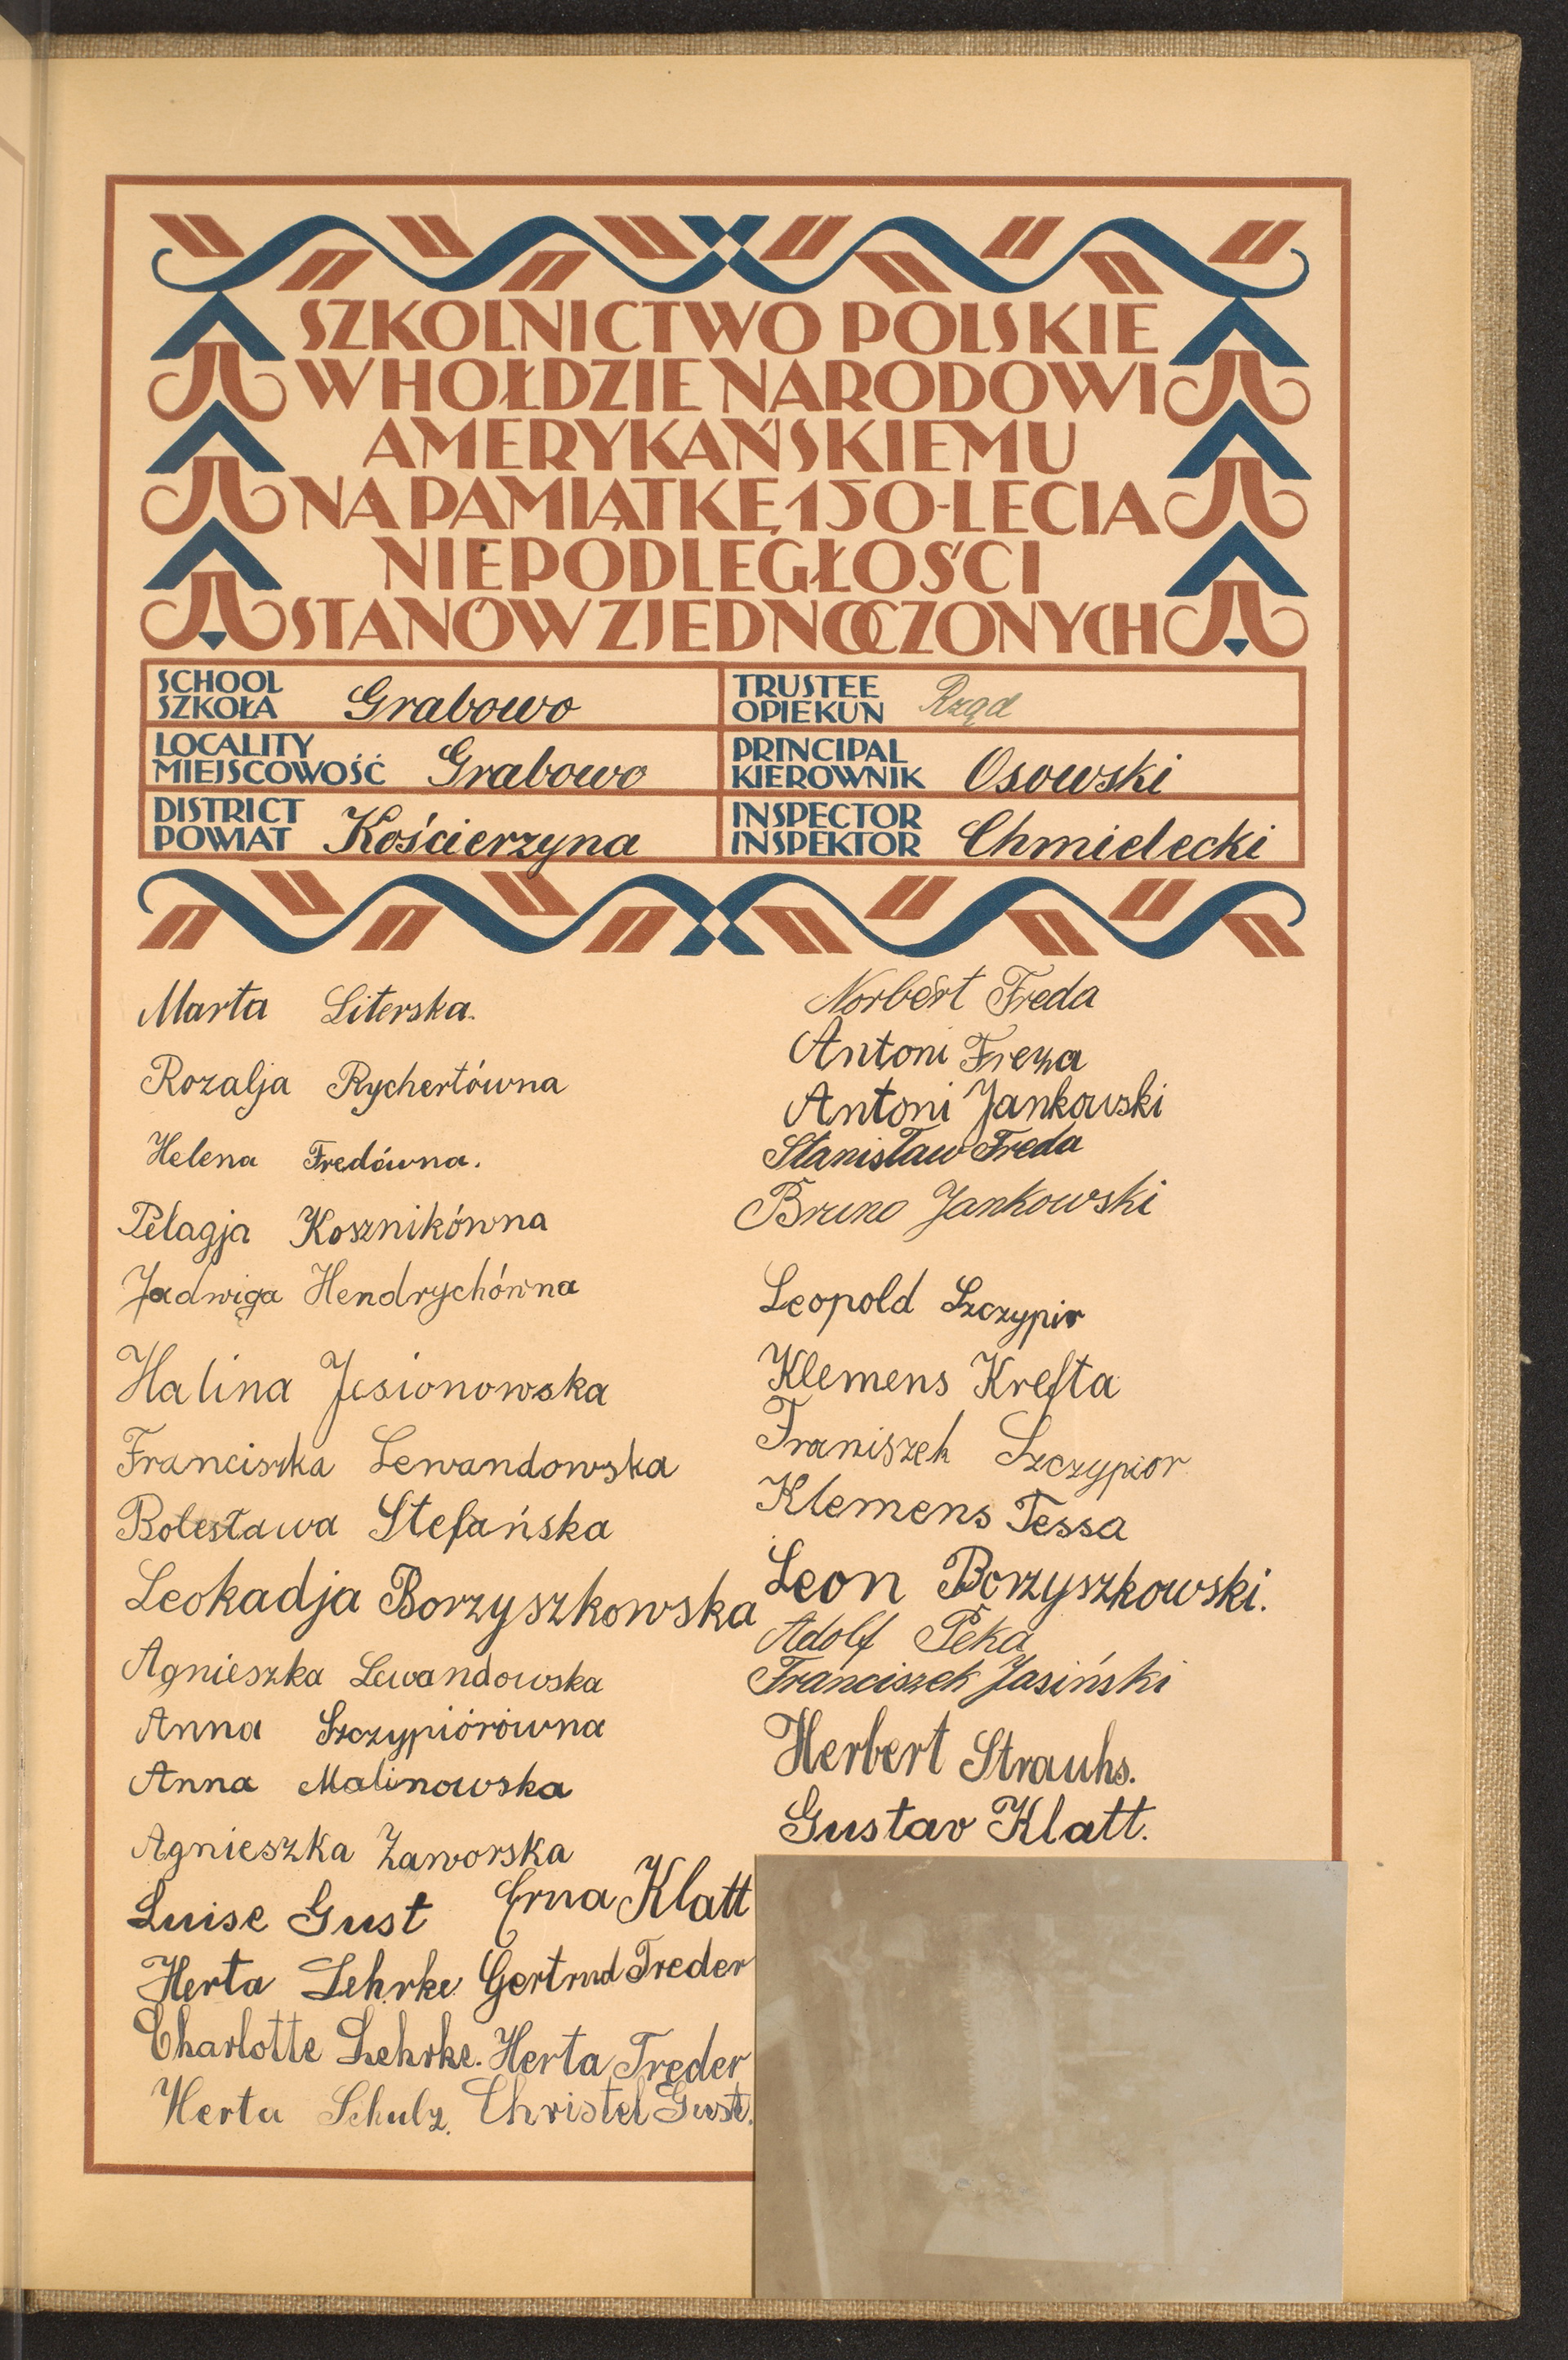 SZKOLNICTWO POLSKIE
W HOŁDZIE NARODOWI
AMERYKAŃSKIEMU
NA PAMIĄTKĘ 150-LECIA
NIEPODLEGŁOŚCI
STANÓW ZJEDNOCZONYCH
SCHOOL
SZKOŁA Grabowo
TRUSTEE
OPIEKUN Rząd
LOCALITY
MIEJSCOWOŚĆ Grabowo
PRINCIPAL
KIEROWNIK Osowski
DISTRICT
POWIAT Kościerzyna
INSPECTOR
INSPEKTOR Chmielecki
Marta Literska.
Rozalja Rychertówna
Helena Fredówna.
Pelagja Kosznikówna
Jadwiga Hendrychówna
Halina Jesionowska
Franciszka Lewandowska
Bolesława Stefańska
Leokadja Borzyszkowska
Agnieszka Lewandowska
Anna Szczypiórówna
Anna Malinowska
Agnieszka Zaworska
Luise Gust Erna Klatt
Herta Lehrke Gertrud Treder
Charlotte Lehrke. Herta Treder
Herta Schulz. Christel Gust.
Norbert Freda
Antoni Freza
Antoni Jankowski
Stanisław Freda
Bruno Jankowski
Leopold Szczypir
Klemens Krefta
Franiszek Szczypior
Klemens Tessa
Leon Borzyszkowski.
Adolf Peka
Franciszek Jasiński
Herbert Strauhs.
Gustav Klatt.